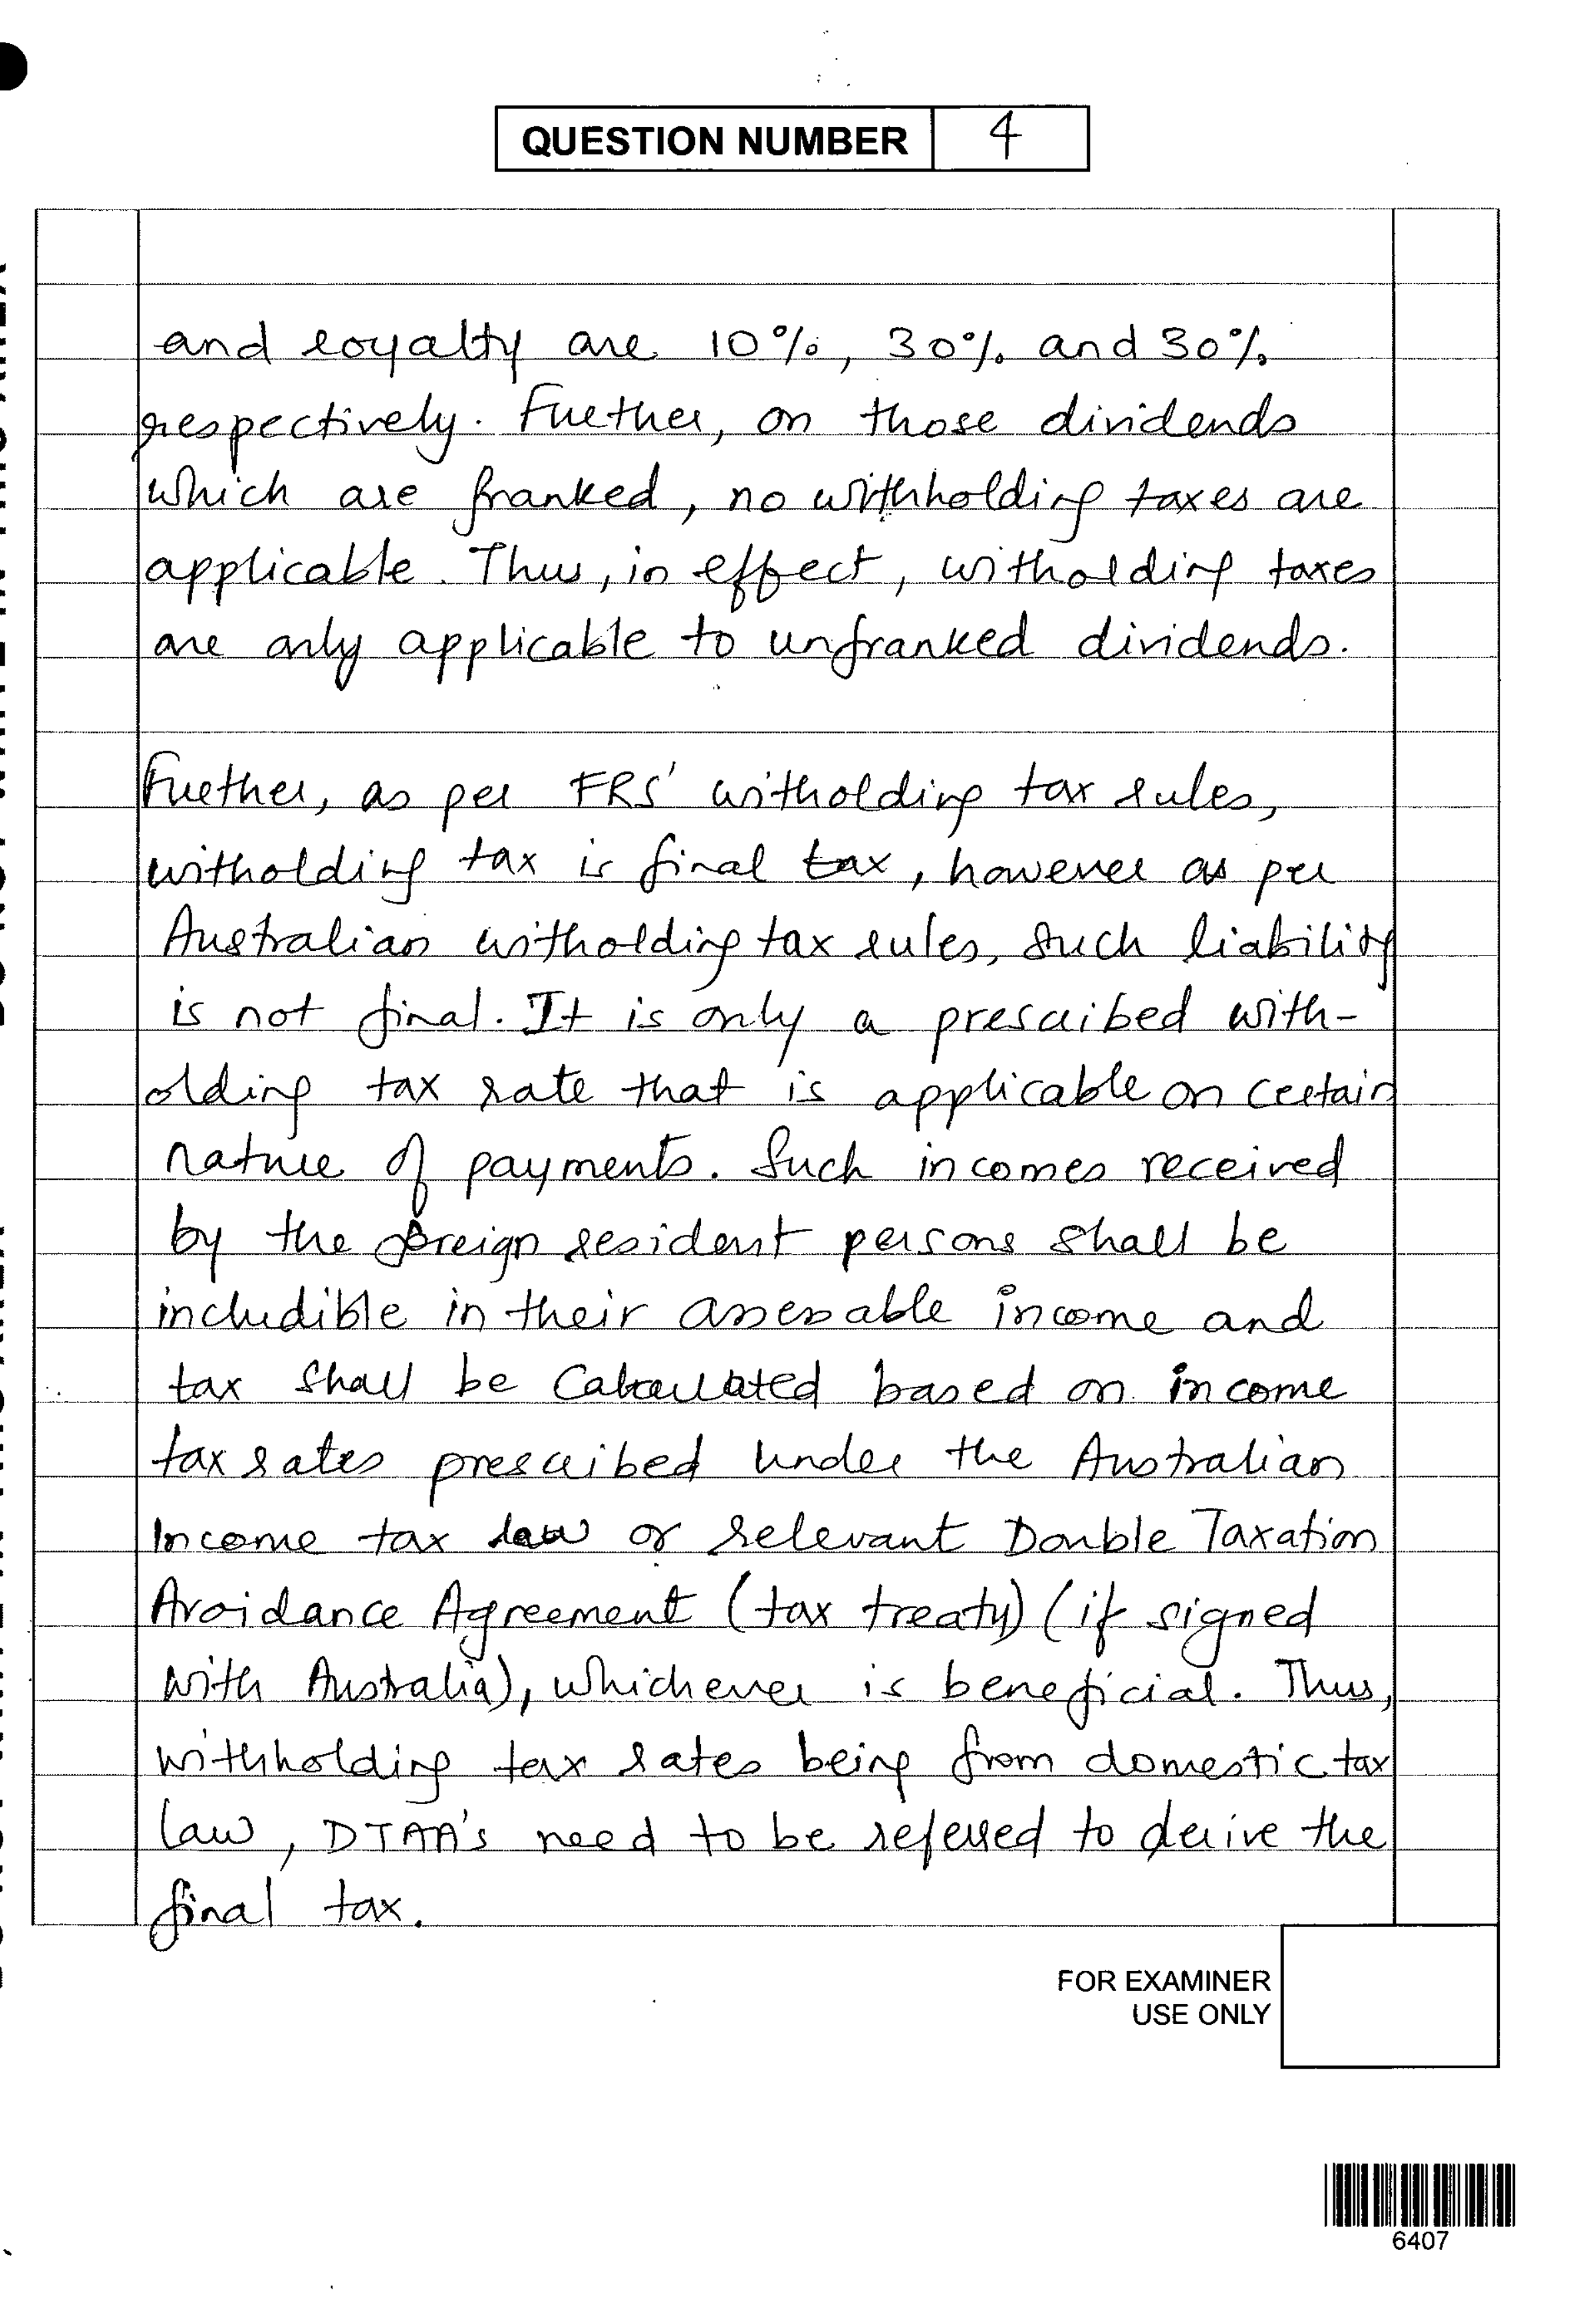 QUESTION NUMBER 4
and royalty are 10%, 30% and 30%
respectively. Further, on those dividends
which are franked, no withholding taxes are
applicable. Thus, in effect, witholding taxes
are only applicable to unfranked dividends.
Further, as per FRS' witholding tax rules,
witholding tax is final tax, however as per
Australian witholding tax rules, such liability
is not final. It is only a prescribed with-
olding tax rate that is applicable on certain
nature of payments. Such incomes received
by the foreign resident persons shall be
includible in their assessable income and
tax shall be calculated based on income
tax rates prescribed under the Australian
Income tax law or relevant Double Taxation
Avoidance Agreement (tax treaty) (if signed
with Australia), whichever is beneficial. Thus,
withholding tax rates being from domestic tax
law, DTAA's need to be referred to derive the
final tax.
FOR EXAMINER
USE ONLY
6407